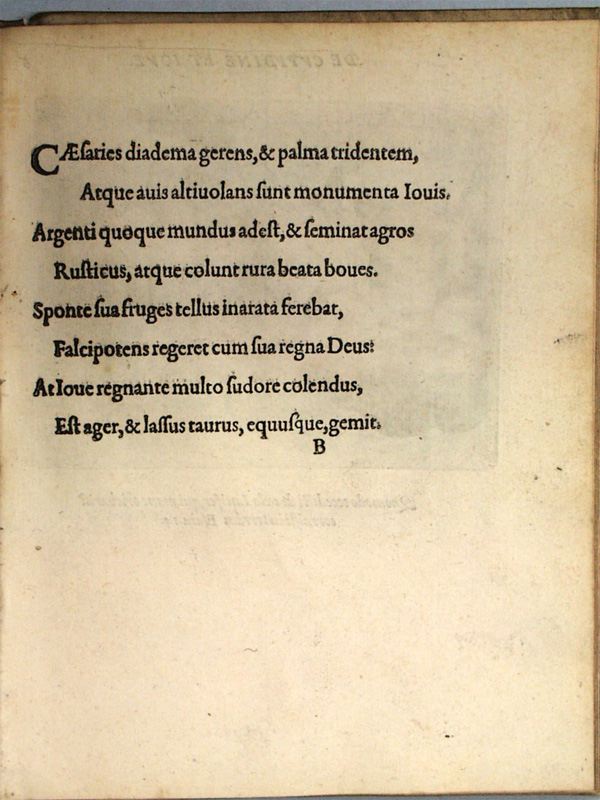 CÆſaries diadema gerens, & palma tridentem,
Atque auis altiuolans ſunt monumenta Iouis.
Argenti quoque mundus adeſt, & ſeminat agros
Ruſticus, atque colunt rura beata boues.
Sponte ſua fruges tellus inarata ferebat,
Falcipotens regeret cum ſua regna Deus:
At Ioue regnante multo ſudore colendus,
Eſt ager, & laſſus taurus, equuſque, gemit.
B